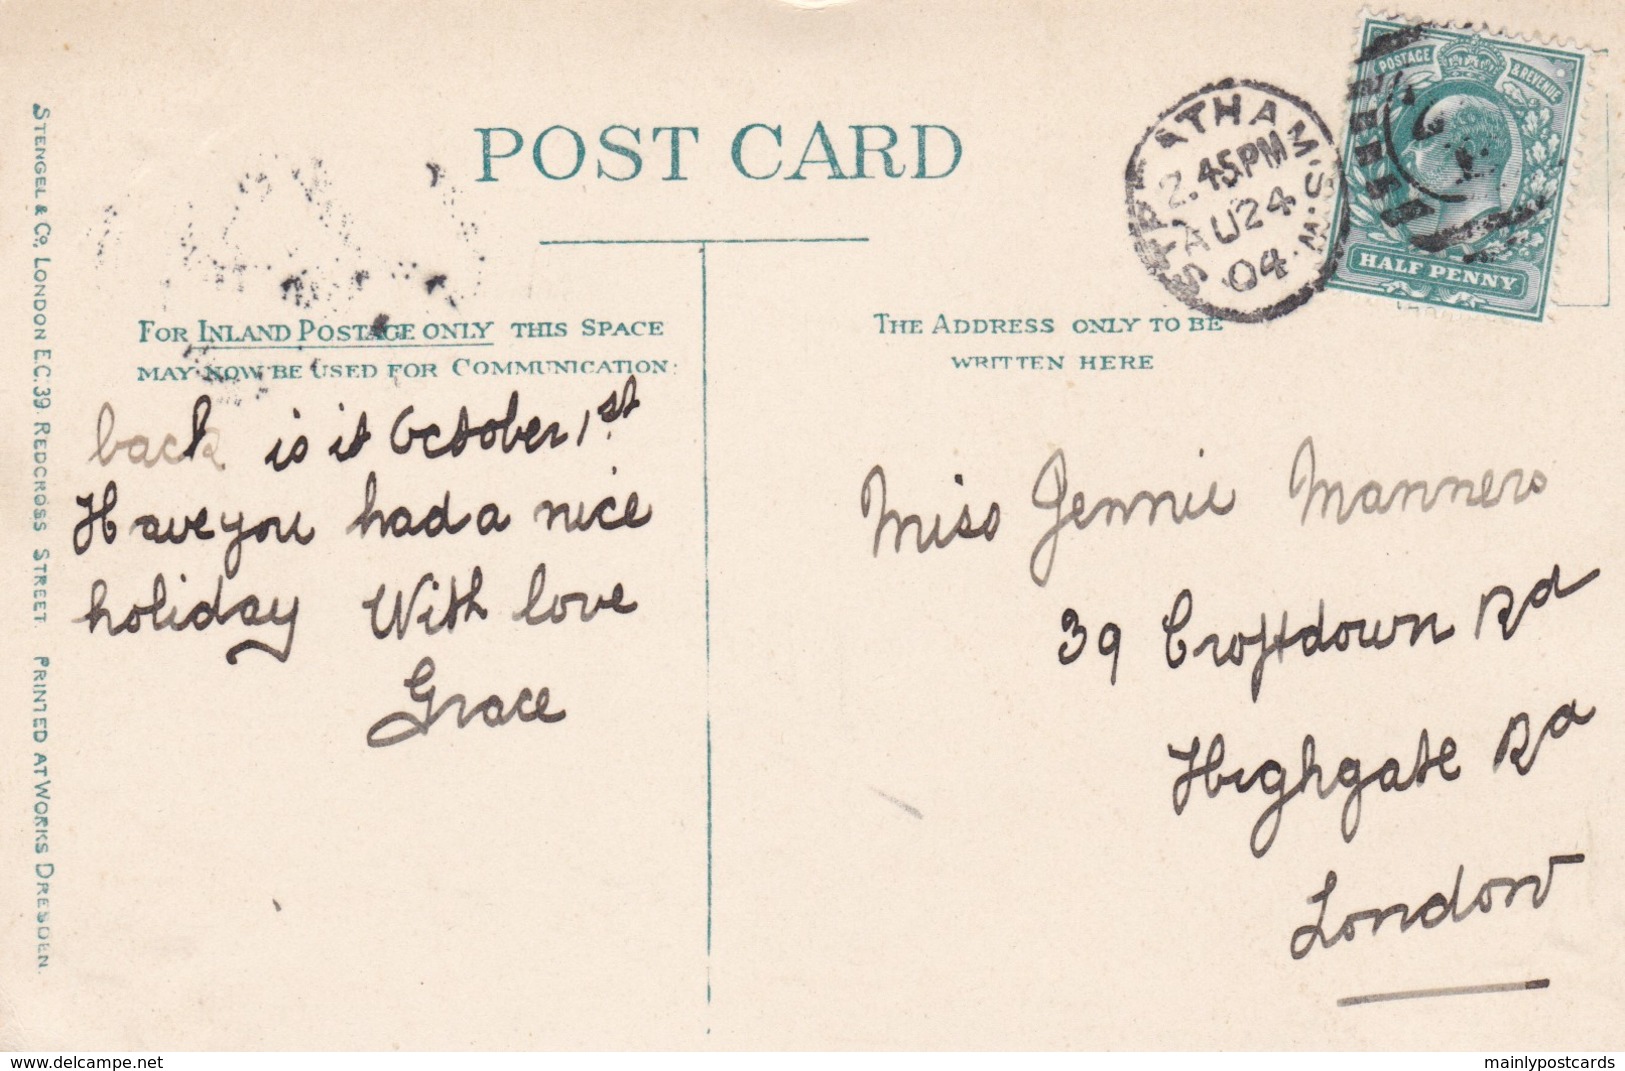 POST CARD
STENGEL & CO, LONDON E.C. 39. REDCROSS STREET. PRINTED AT WORKS DRESDEN.
FOR INLAND POSTAGE ONLY THIS SPACE
MAY NOW BE USED FOR COMMUNICATION:
back is it October 1st
Have you had a nice
holiday With love
Grace
THE ADDRESS ONLY TO BE
WRITTEN HERE
Miss Jennie Manners
39 Croftdown Rd
Highgate Rd
London
ATHAM.S.W.
2.45PM
AU 24
04
POSTAGE & REVENUE
HALF PENNY
delcampe.net
mainlypostcards